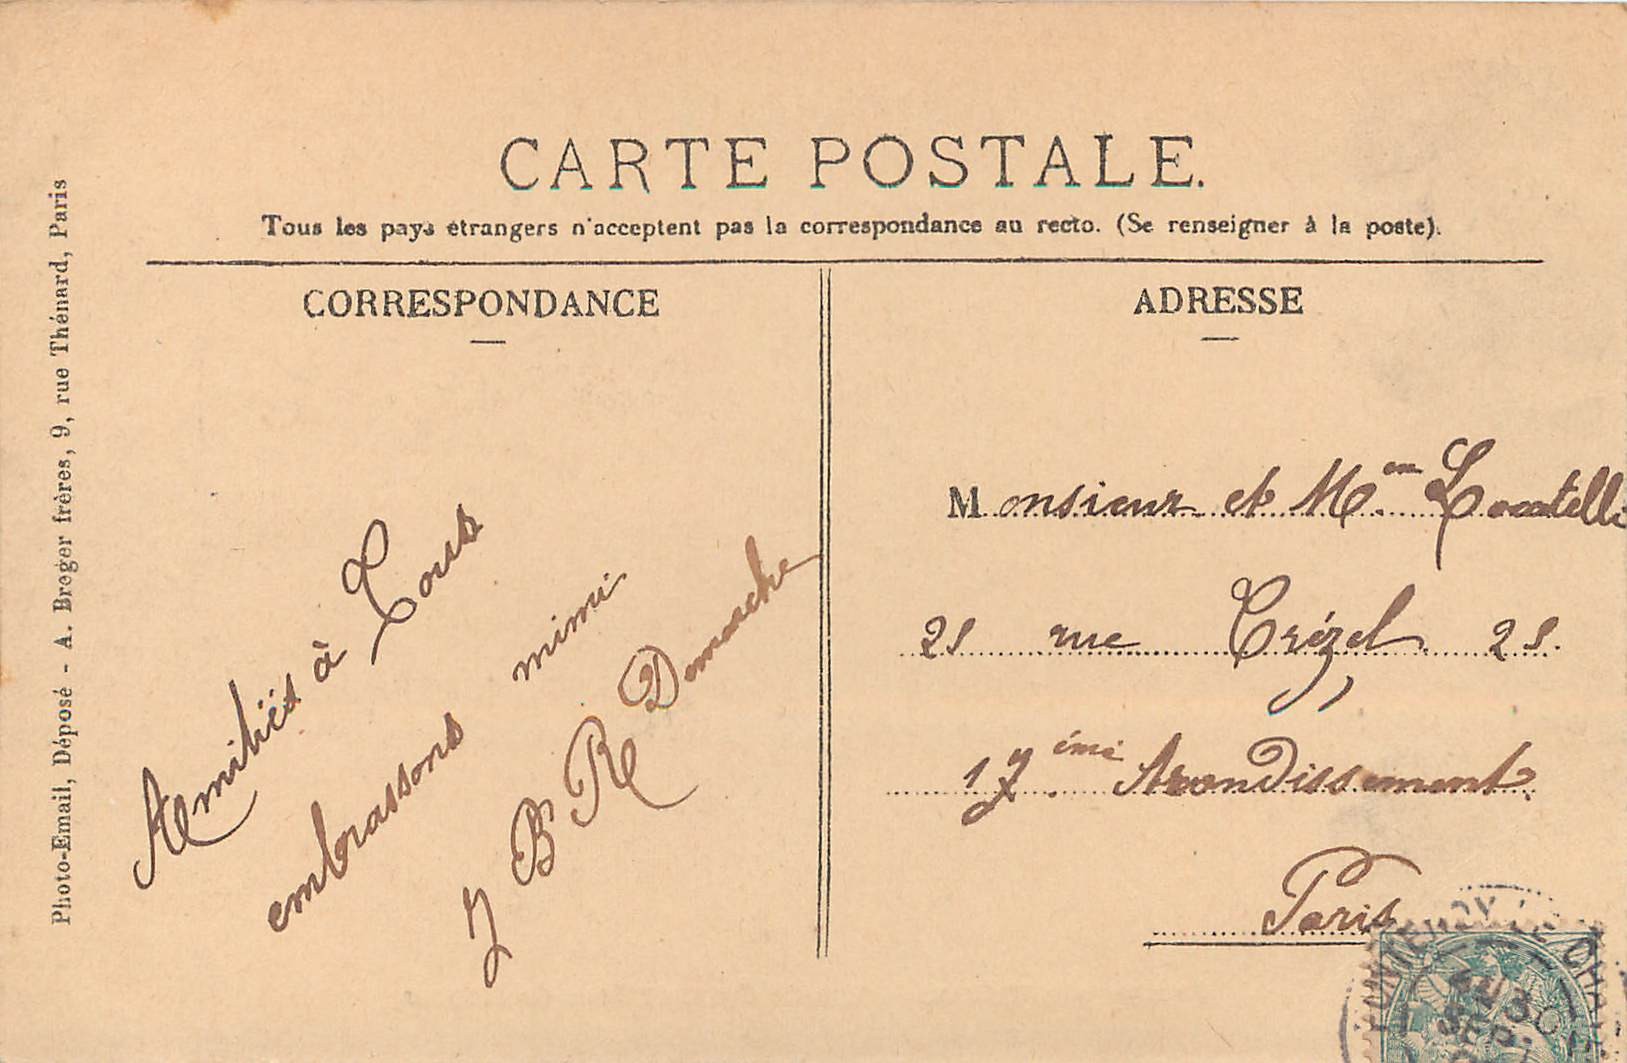 CARTE POSTALE.
Tous les pays étrangers n'acceptent pas la correspondance au recto. (Se renseigner à la poste).
CORRESPONDANCE
Amitiés à Tous
embrassons mimi
J B R Demarche
ADRESSE
Monsieur et Mme Locatelli
21 rue Trézel 21.
17ème Arondissement.
Paris
Photo-Email, Déposé - A. Breger frères, 9, rue Thénard, Paris